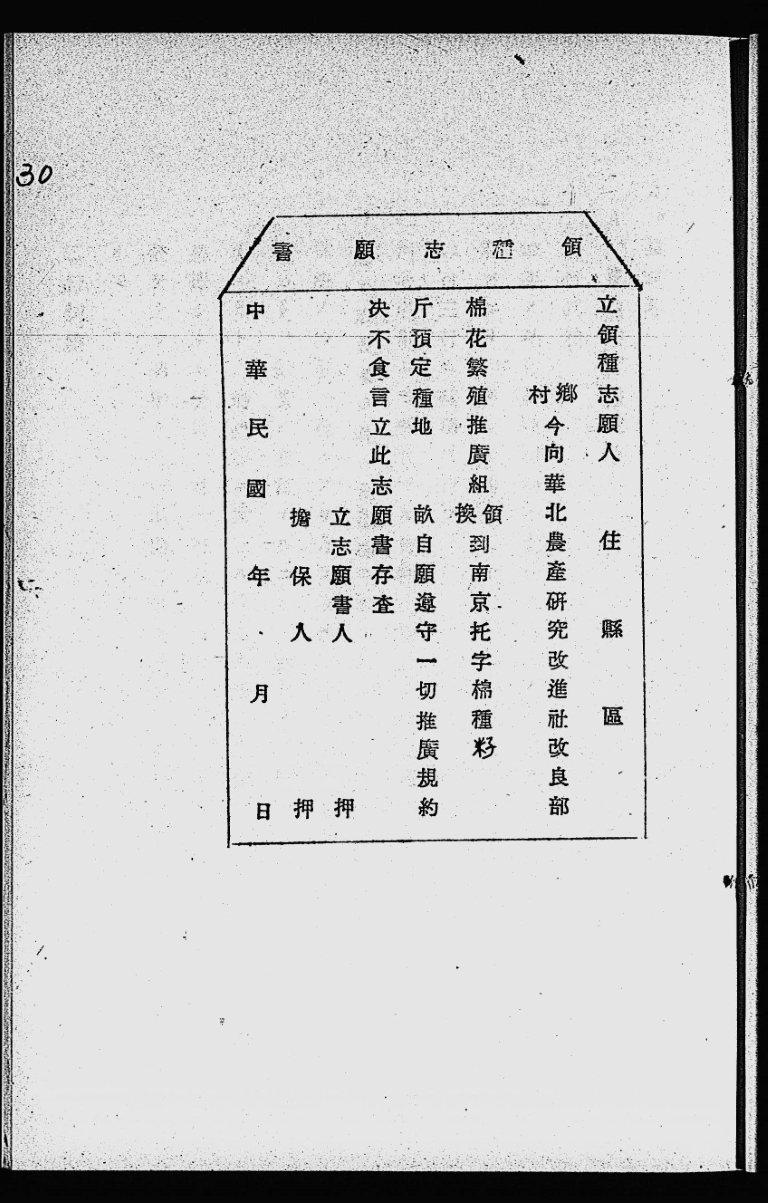 30
領種志願書
立領種志願人 住 縣 區
鄉村今向華北農產研究改進社改良部
棉花繁殖推廣組領換到南京托字棉種籽
斤預定種地 畝自願遵守一切推廣規約
决不食言立此志願書存查
立志願書人 押
擔保人 押
中華民國 年 月 日